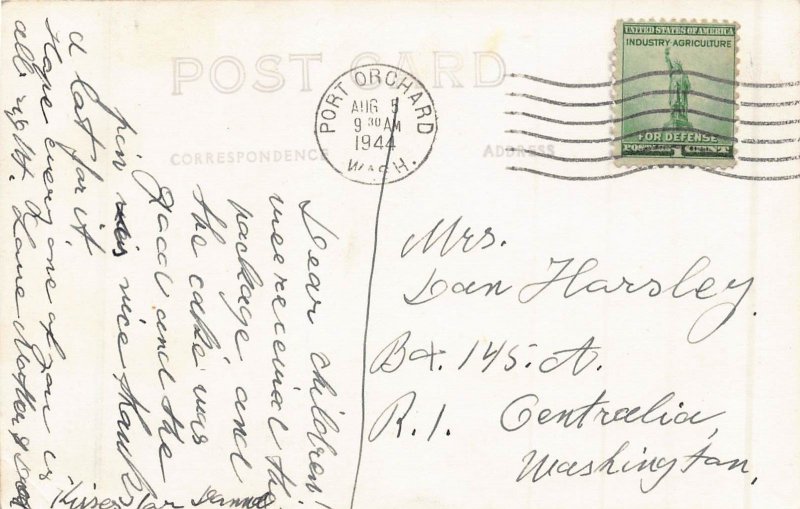 POST CARD
CORRESPONDENCE
ADDRESS
PORT ORCHARD
AUG 5
9 30 AM
1944
WASH.
UNITED STATES OF AMERICA
INDUSTRY·AGRICULTURE
1
FOR DEFENSE
POSTAGE 1 CENTS
Mrs.
Dan Harsley.
Bx. 145. A.
R. 1. Centralia,
Washington,
Dear children!
wee receivd the
package and
the cake was
Good and the
pin was nice thank
a lot for it.
Hope every one of you is
all right. Love Mother &
Kisses for